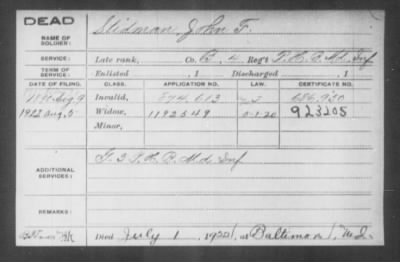 DEAD
NAME OF SOLDIER: Stidman, John F.
SERVICE: Late rank, Co. B, 4 Reg't P.H.B. Md. Inf
TERM OF SERVICE: Enlisted , 1 Discharged , 1
DATE OF FILING. CLASS. APPLICATION NO. LAW. CERTIFICATE NO.
Invalid, 874,613 686,920
1922 Aug. 5 Widow, 1192549 5-1-20 923205
Minor,
ADDITIONAL SERVICES: F. 3 P.H.B. Md. Inf
REMARKS:
Died July 1, 1922, at Baltimore, Md.